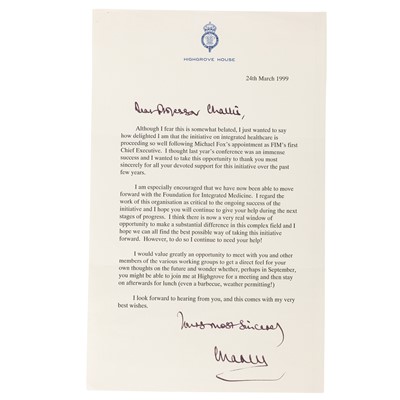 HIGHGROVE HOUSE
24th March 1999
Dear Professor Challis,
Although I fear this is somewhat belated, I just wanted to say
how delighted I am that the initiative on integrated healthcare is
proceeding so well following Michael Fox's appointment as FIM's first
Chief Executive. I thought last year's conference was an immense
success and I wanted to take this opportunity to thank you most
sincerely for all your devoted support for this initiative over the past
few years.
I am especially encouraged that we have now been able to move
forward with the Foundation for Integrated Medicine. I regard the
work of this organisation as critical to the ongoing success of the
initiative and I hope you will continue to give your help during the next
stages of progress. I think there is now a very real window of
opportunity to make a substantial difference in this complex field and I
hope we can all find the best possible way of taking this initiative
forward. However, to do so I continue to need your help!
I would value greatly an opportunity to meet with you and other
members of the various working groups to get a direct feel for your
own thoughts on the future and wonder whether, perhaps in September,
you might be able to join me at Highgrove for a meeting and then stay
on afterwards for lunch (even a barbecue, weather permitting!)
I look forward to hearing from you, and this comes with my very
best wishes.
Yours most sincerely
Charles